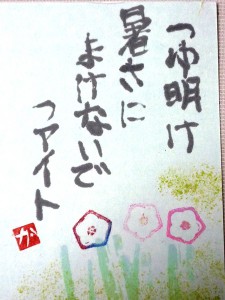 つゆ明け
暑さに
まけないで
ファイト
か